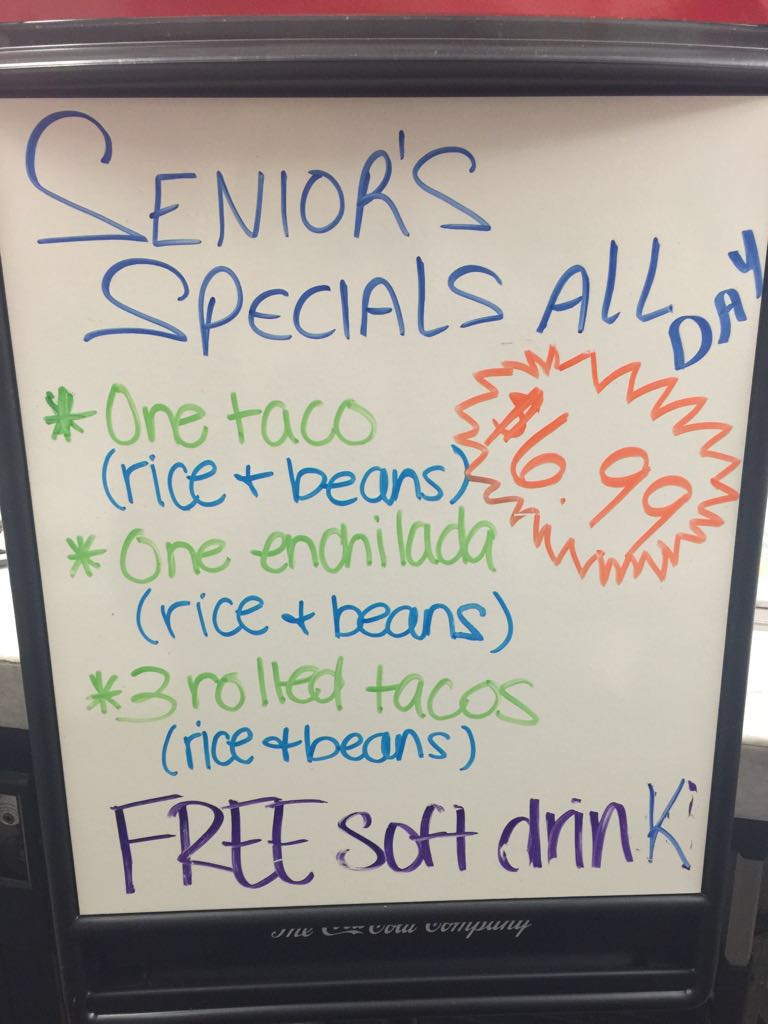 SENIOR'S
SPECIALS ALL DAY
* One taco
(rice + beans)
$6.99
* One enchilada
(rice + beans)
* 3 rolled tacos
(rice + beans)
FREE soft drink
The Coca-Cola Company